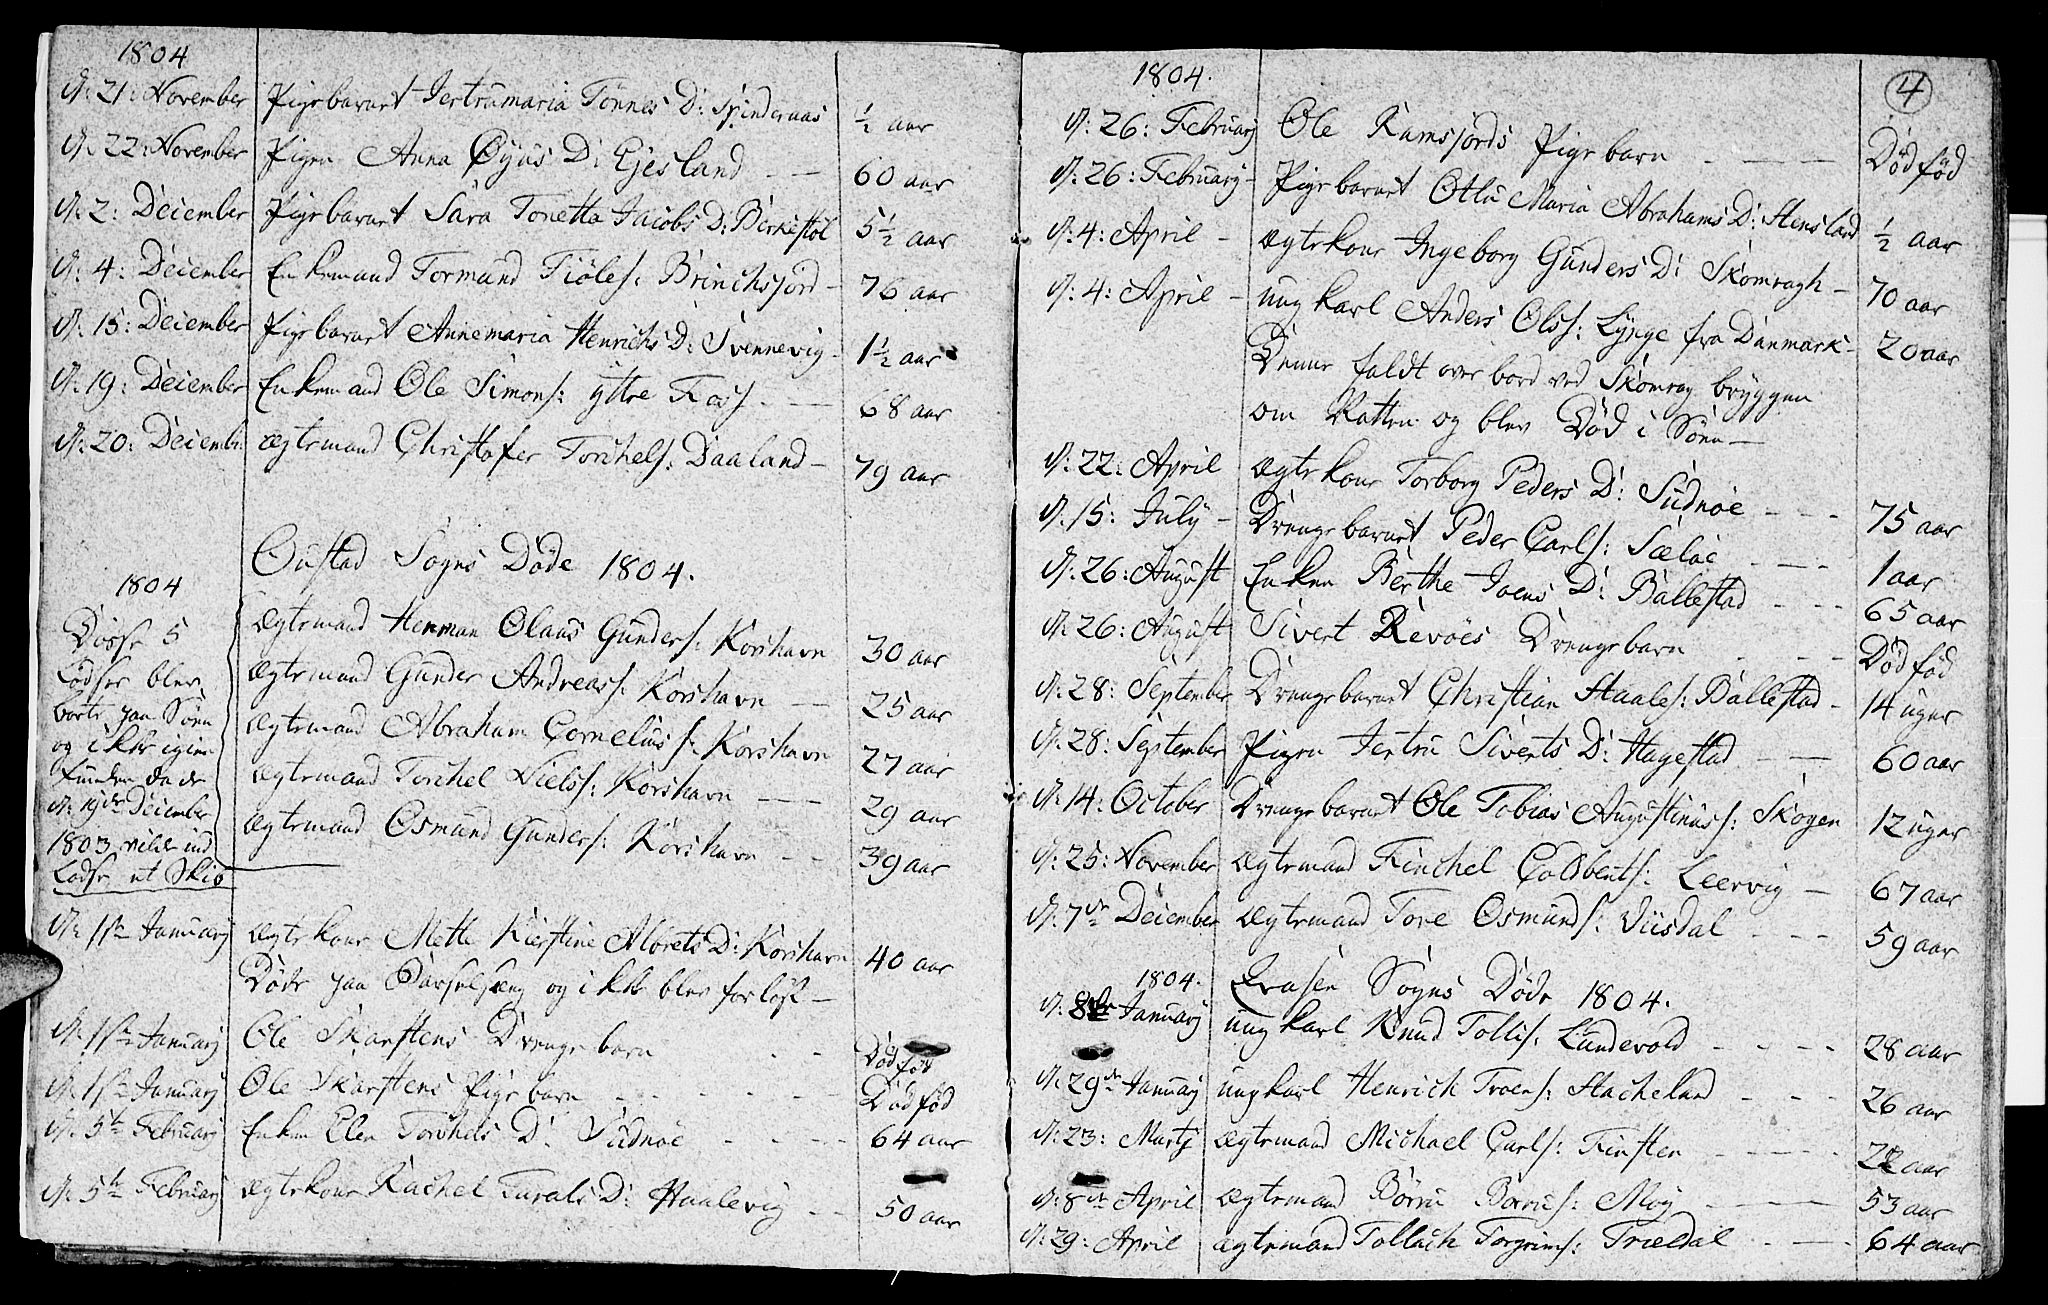 1804
d: 21: November Pigebarnet Jertrumaria Tønnes D: Spindernæs ½ aar
d: 22: November Pigen Anna Øÿüs D: Ejesland 60 aar
d: 2: December Pigebarnet Sara Tonetta Jacobs D: Birkestøl 5½ aar
d: 4: December Enkemand Tormund Fiøles: Brinchsford 76 aar
d: 15: December Pigebarnet Annemaria Henrichs D: Svennevig 1½ aar
d: 19: December Enkemand Ole Simons: ÿttre Foss 68 aar
d: 20: Decemb: ægtemand Christofer Torchels: Daaland 79 aar
Oustad Sogns Døde 1804.
1804
Disse 5
Lodser blev
borte paa Søen
og ikke igien
funden da de
d: 19de December
1803 vilde ind
Lodse et Skib
ægtemand Herman Olaus Gunders: Korshavn 30 aar
ægtemand Gunder Andreass: Korshavn 25 aar
ægtemand Abraham Cornelius s: Korshavn 27 aar
ægtemand Torchel Niels: Korshavn 29 aar
ægtemand Osmund Gunders: Korshavn 39 aar
d: 1ste Januarj ægtekone Mette Kierstine Albrets D: Korshavn 40 aar
Døde paa Barselseng og ikke blev forløst
d: 1ste Januarj Ole Skarstens Drengebarn Død fød
d: 1ste Januarj Ole Skarstens Pigebarn Død fød
d: 5te Februarj Enken Elen Torchels D: Sudnøe 64 aar
d: 5te Februarj ægtekone Rachel Turals D: Haalevig 50 aar
4
1804.
d: 26: Februarj Ole Ramsfords Pigebarn Død fød
d: 26: Februarj Pigebarnet Otlu Maria Abrahams D: Stensland ½ aar
d: 4: April ægtekone Ingeborg Gunders D: Skomragh 70 aar
d: 4: April ung karl Anders Ols: Lÿnge fra Danmark 20 aar
Denne faldt over bord ved Skomrag bryggen
om Natten og blev Død i Søen
d: 22: April ægtekone Torborg Peders D: Sudnøe 75 aar
d: 15: July Drengebarnet Peder Carls: Sæløe 1 aar
d: 26: August Enken Berthe Joens D: Ballestad 65 aar
d: 26: August Sivert Revøes Drengebarn Død fød
d: 28: September Drengebarnet Christian Staales: Ballestad 14 uger
d: 28: September Pigen Jertru Siverts D: Hagestad 60 aar
d: 14: October Drengebarnet Ole Tobias Augustinuss: Skogen 12 uger
d: 25: November ægtemand Finchel Coldbents: Leervig 67 aar
d: 7de December ægtemand Tore Osmunds: Viisdal 59 aar
1804. Qvasen Sogns Døde 1804.
d: 8de Januarj ung karl Knud Tollis: Lundevold 28 aar
d: 29de Januarj ungkarl Henrich Troens: Stacheland 26 aar
d: 23: Martj ægtemand Michael Carls: Finsten aar
d: 8de April ægtemand Børu Børues: Moy 53 aar
d: 29: April ægtemand Tollach Torgrims: Trældal 64 aar